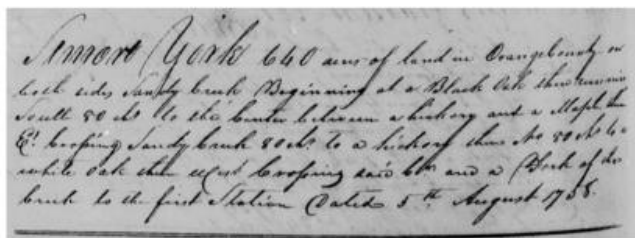 Simore York 640 acres of land in Orange County on
both sides Sandy Creek Beginning at a Black Oak then running
South 80 chs to the Center between a hickory and a Maple then
Et. Crossing Sandy Creek 80 chs to a hickory thence No 80 chs to a
white oak then West Crossing said and a Fork of the
Creek to the first Station Dated 5th August 1758